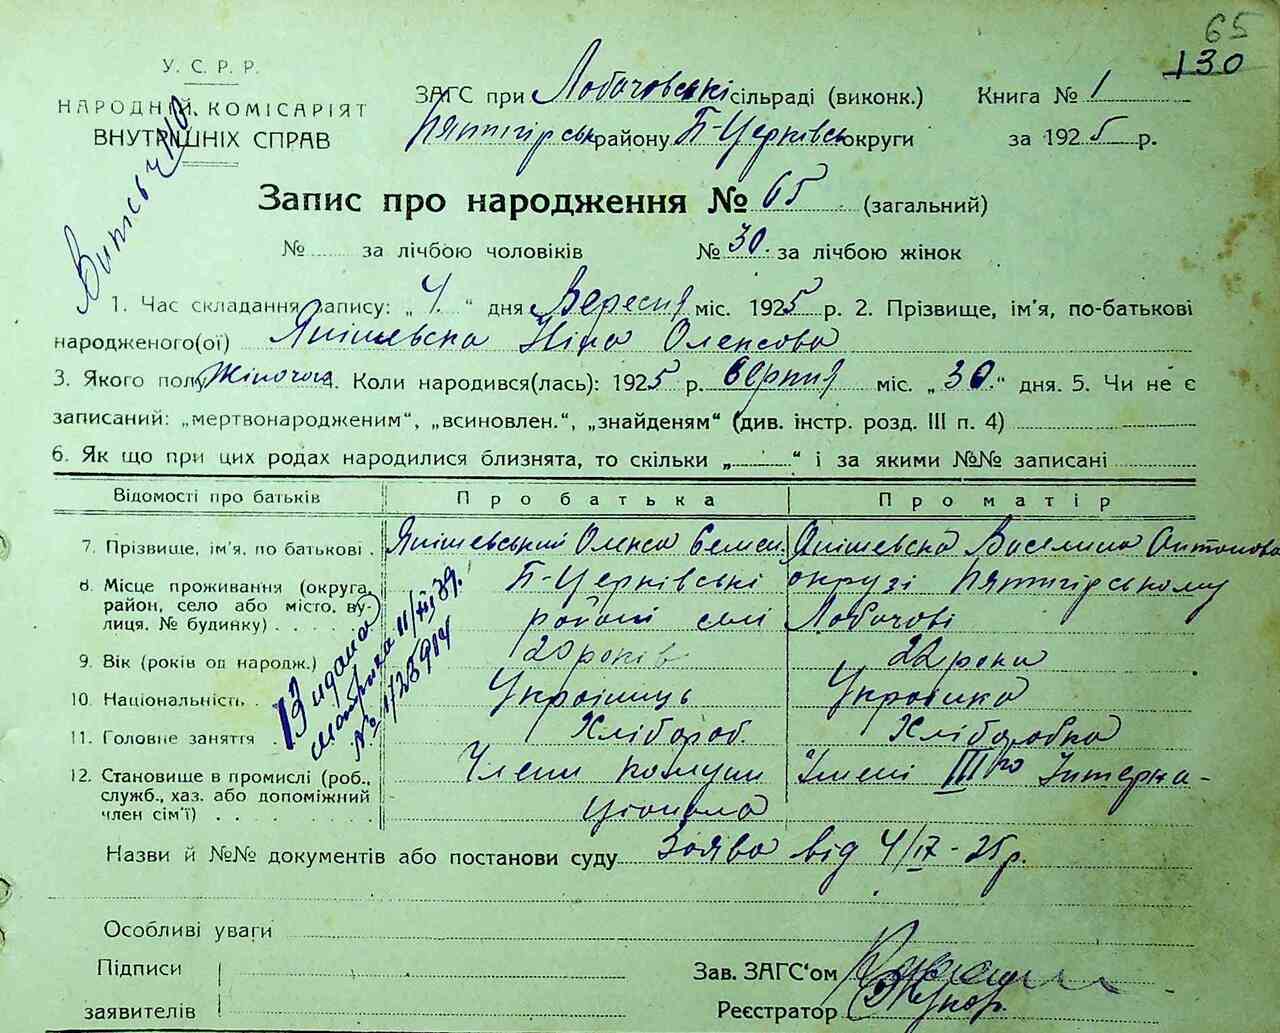 65
130
У. С. Р. Р.
НАРОДНИЙ КОМІСАРІЯТ
ВНУТРІШНІХ СПРАВ
ЗАГС при Лобачовській сільраді (виконк.) Книга № 1
Пятигірськ району Б-Церківськ округи за 1925 р.
Запис про народження № 65 (загальний)
№ за лічбою чоловіків № 30 за лічбою жінок
1. Час складання запису: „ 4. “ дня Вересня міс. 1925 р. 2. Прізвище, ім'я, по-батькові
народженого(ої) Янішевска Ніна Олексова
3. Якого полу Жіночого 4. Коли народився(лась): 1925 р. Серпня міс. „ 30. “ дня. 5. Чи не є
записаний: „мертвонародженим“, „всиновлен.“, „знайденям“ (див. інстр. розд. III п. 4)
6. Як що при цих родах народилися близнята, то скільки „ “ і за якими №№ записані
Відомості про батьків Про батька Про матір
7. Прізвище, ім'я, по батькові . Янішевський Олекса Семен. Янішевска Василина Антонова
8. Місце проживання (округа, Б-Церківські окрузі Пятигірському
район, село або місто, ву- районі селі Лобачові
лиця, № будинку)
9. Вік (років од народж.) 20 років 22 роки
10. Національність . Українець Українка
11. Головне заняття . Хлібороб. Хліборобка
12. Становище в промислі (роб., Члени комуни Імені III го Інтерна-
служб., хаз. або допоміжний ціонала
член сім'ї)
Видана
метрика 11/XII 39.
№ 1/125914
Назви й №№ документів або постанови суду Заява від 4/IX - 25 р.
Особливі уваги
Підписи
заявителів
Зав. ЗАГС'ом
Реєстратор